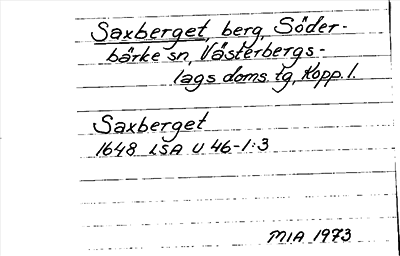 Saxberget, berg, Söder-
bärke sn, Västerbergs-
lags doms. tg, Kopp. l.
Saxberget
1648 LSA U 46-1:3
MIA 1973